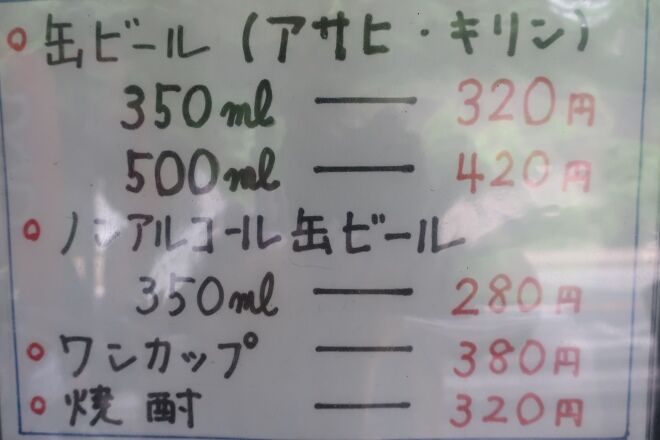 ○ 缶ビール (アサヒ・キリン)
350ml — 320円
500ml — 420円
○ ノンアルコール缶ビール
350ml — 280円
○ ワンカップ — 380円
○ 焼酎 — 320円